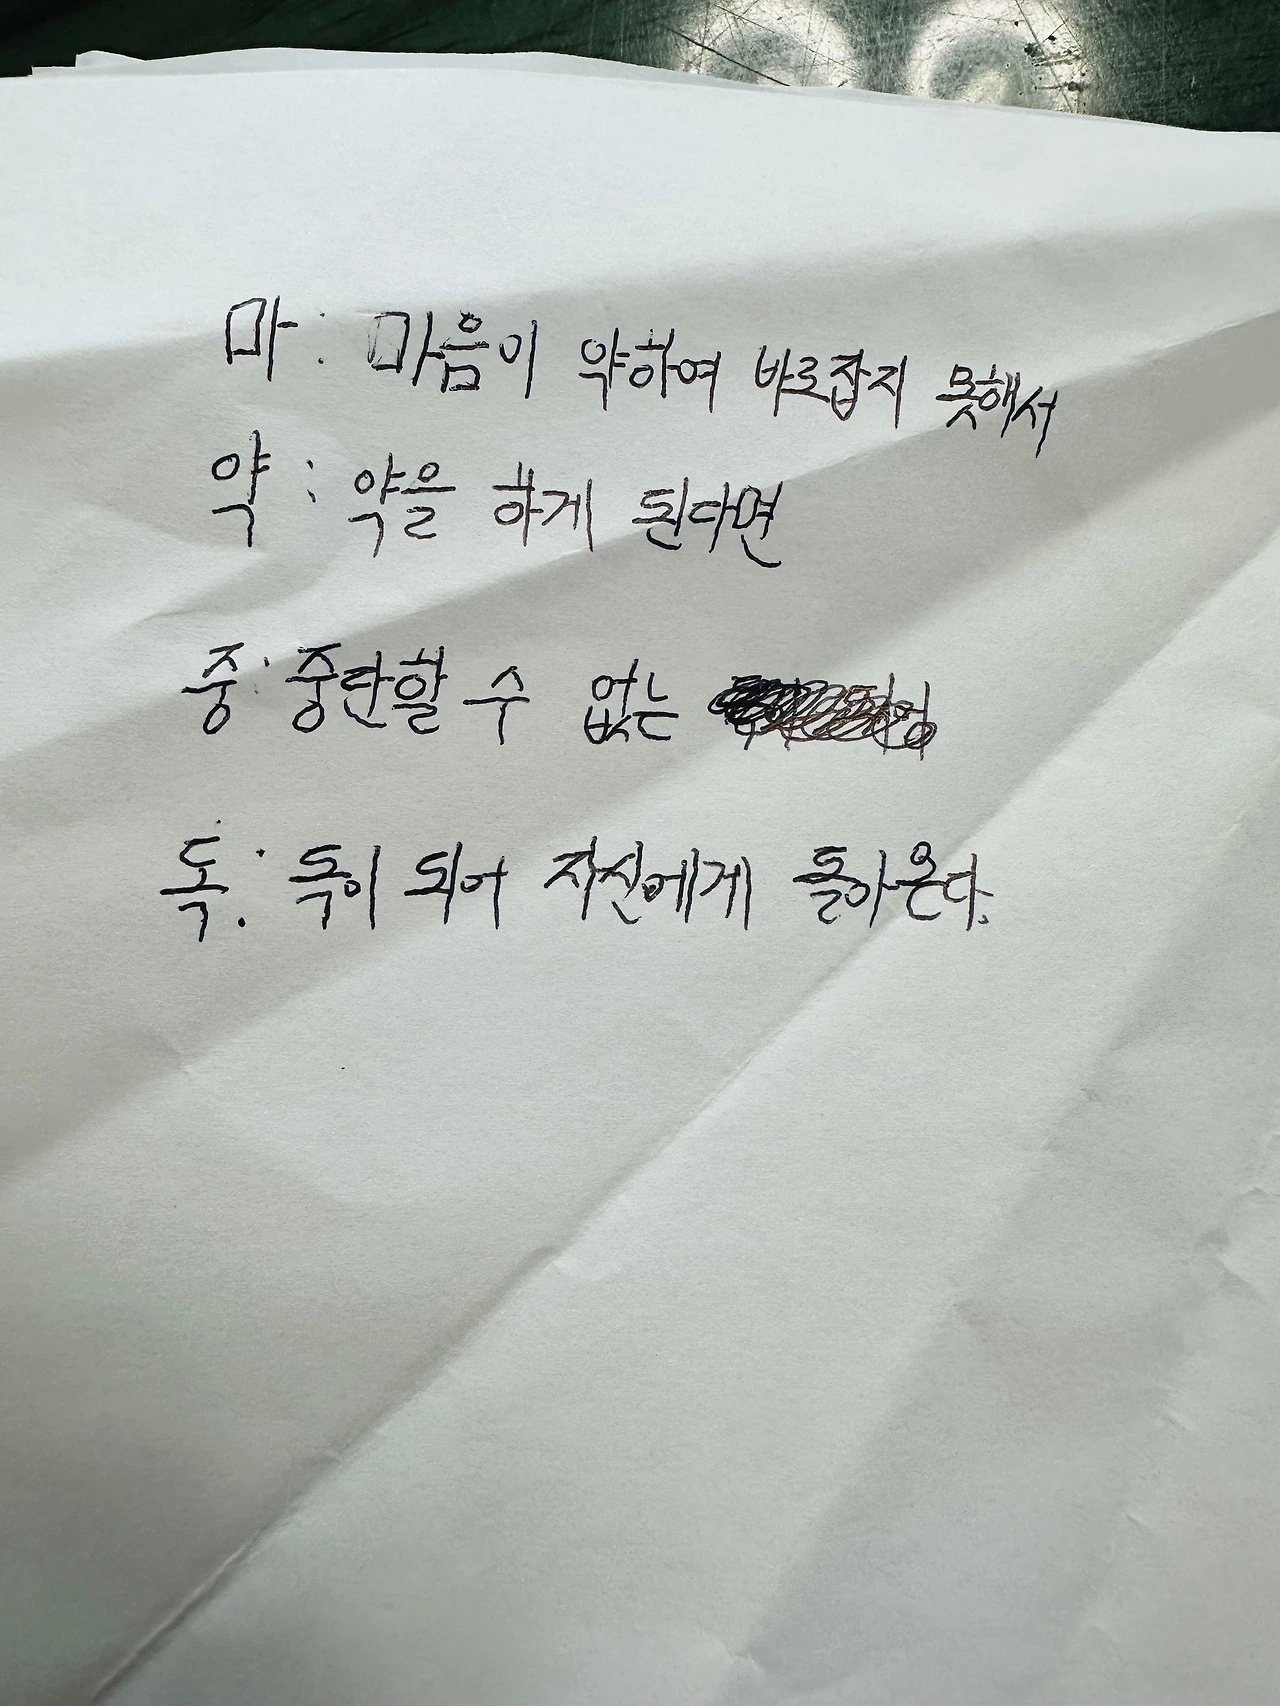 마 : 마음이 약하여 바로잡지 못해서
약 : 약을 하게 된다면
중 : 중단할 수 없는
독 : 독이 되어 자신에게 돌아온다.